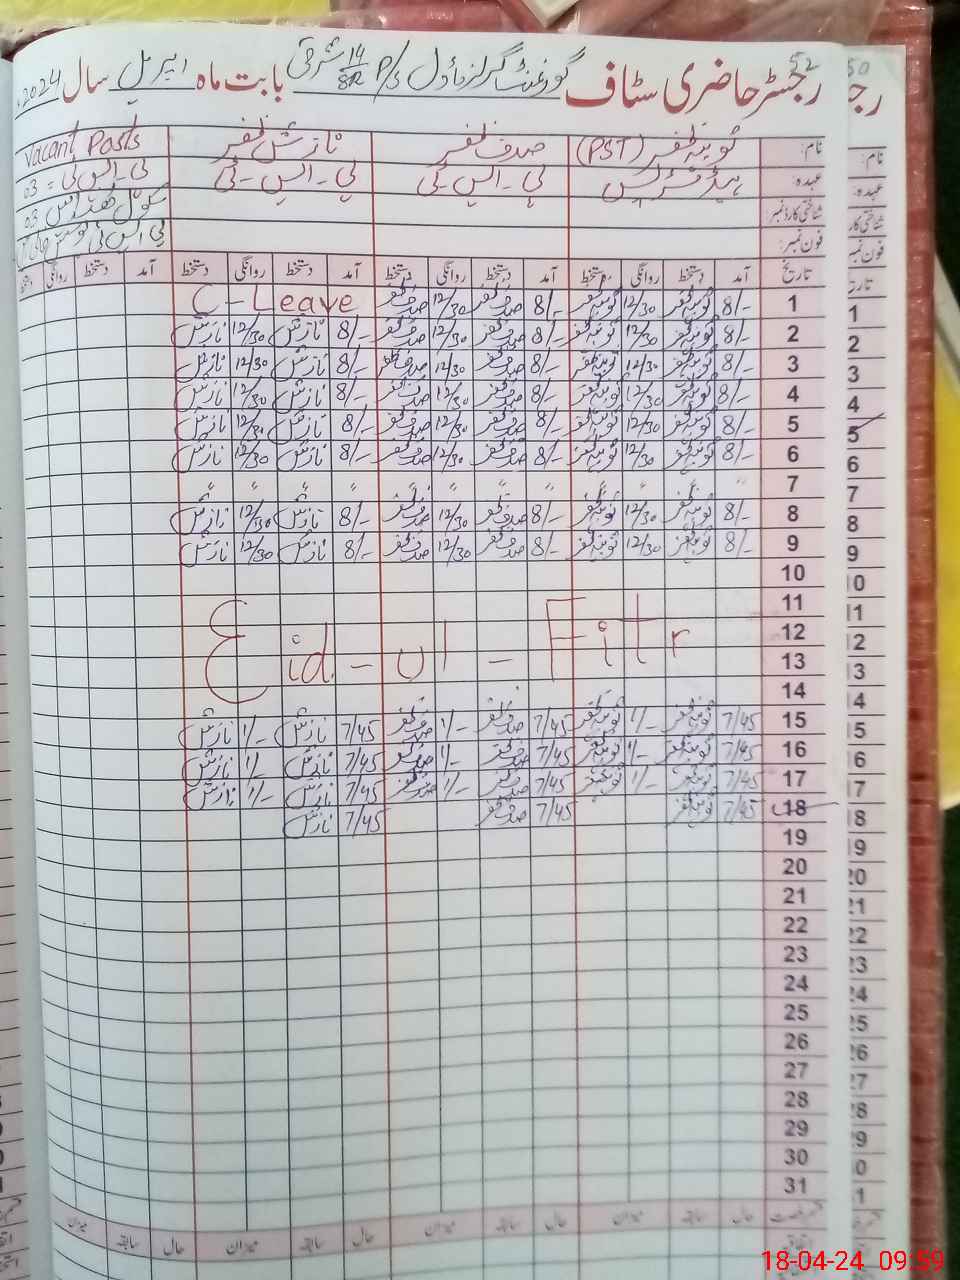 52
رجسٹر حاضری سٹاف گورنمنٹ گرلز ماڈل P/S 14/8R شرقی بابت ماہ اپریل سال 2024ء
نام: ثوبیہ ظفر (PST) صدف ظفر نازش ظفر Vacant Posts
عہدہ: ہیڈ مسٹریس پی۔ایس۔ٹی پی۔ایس۔ٹی پی۔ایس ٹی = 03
شناختی کارڈ نمبر: 03
فون نمبر:
تاریخ آمد دستخط روانگی دستخط آمد دستخط روانگی دستخط آمد دستخط روانگی دستخط آمد دستخط روانگی دستخط
1 8/- ثوبیہ ظفر 12/30 ثوبیہ ظفر 8/- صدف ظفر 12/30 صدف ظفر C-Leave
2 8/- ثوبیہ ظفر 12/30 ثوبیہ ظفر 8/- صدف ظفر 12/30 صدف ظفر 8/- نازش 12/30 نازش
3 8/- ثوبیہ ظفر 12/30 ثوبیہ ظفر 8/- صدف ظفر 12/30 صدف ظفر 8/- نازش 12/30 نازش
4 8/- ثوبیہ ظفر 12/30 ثوبیہ ظفر 8/- صدف ظفر 12/30 صدف ظفر 8/- نازش 12/30 نازش
5 8/- ثوبیہ ظفر 12/30 ثوبیہ ظفر 8/- صدف ظفر 12/30 صدف ظفر 8/- نازش 12/30 نازش
6 8/- ثوبیہ ظفر 12/30 ثوبیہ ظفر 8/- صدف ظفر 12/30 صدف ظفر 8/- نازش 12/30 نازش
7 " " " " " " " " " " " "
8 8/- ثوبیہ ظفر 12/30 ثوبیہ ظفر 8/- صدف ظفر 12/30 صدف ظفر 8/- نازش 12/30 نازش
9 8/- ثوبیہ ظفر 12/30 ثوبیہ ظفر 8/- صدف ظفر 12/30 صدف ظفر 8/- نازش 12/30 نازش
10
11
12 Eid-ul-Fitr
13
14
15 7/45 ثوبیہ ظفر 1/- ثوبیہ ظفر 7/45 صدف ظفر 1/- صدف ظفر 7/45 نازش 1/- نازش
16 7/45 ثوبیہ ظفر 1/- ثوبیہ ظفر 7/45 صدف ظفر 1/- صدف ظفر 7/45 نازش 1/- نازش
17 7/45 ثوبیہ ظفر 1/- ثوبیہ ظفر 7/45 صدف ظفر 1/- صدف ظفر 7/45 نازش 1/- نازش
18 7/45 ثوبیہ ظفر 7/45 صدف ظفر 7/45 نازش
19
20
21
22
23
24
25
26
27
28
29
30
31
حال سابقہ میزان حال سابقہ میزان حال سابقہ میزان
18-04-24 09:59